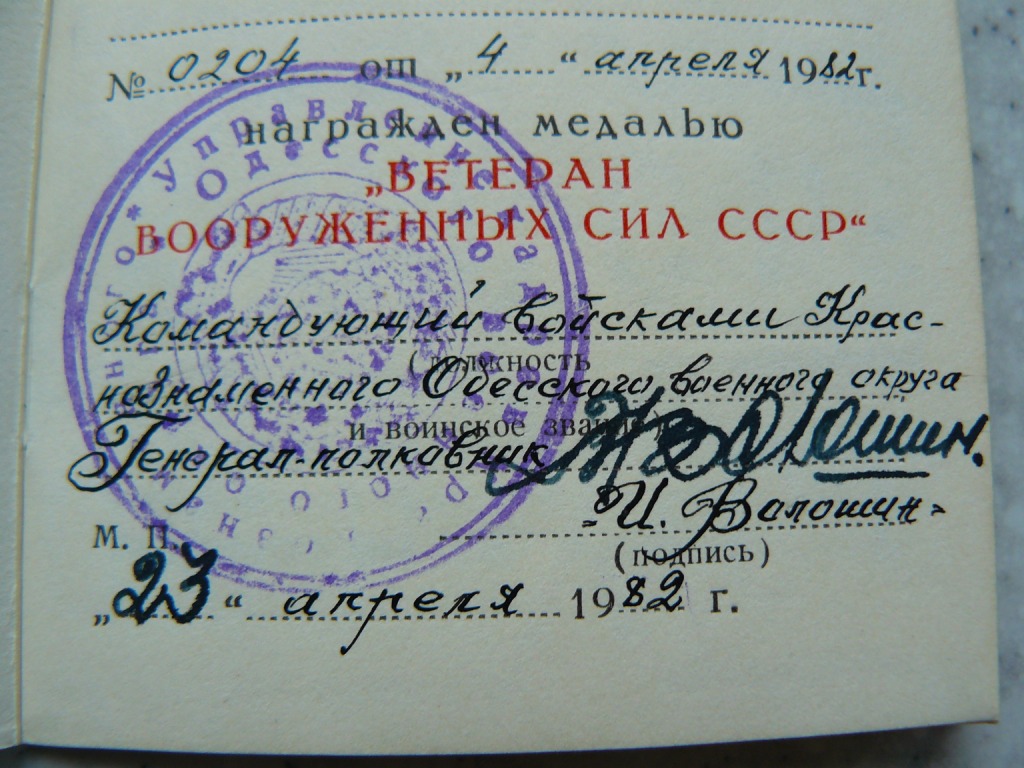 № 0204 от „4“ апреля 1982г.
награжден медалью
„ВЕТЕРАН
ВООРУЖЕННЫХ СИЛ СССР“
Командующий войсками Крас-
(должность
нознаменного Одесского военного округа
и воинское звание)
Генерал-полковник
"И. Волошин"
М. П.
(подпись)
„23“ апреля 1982 г.
Управление
Одесского